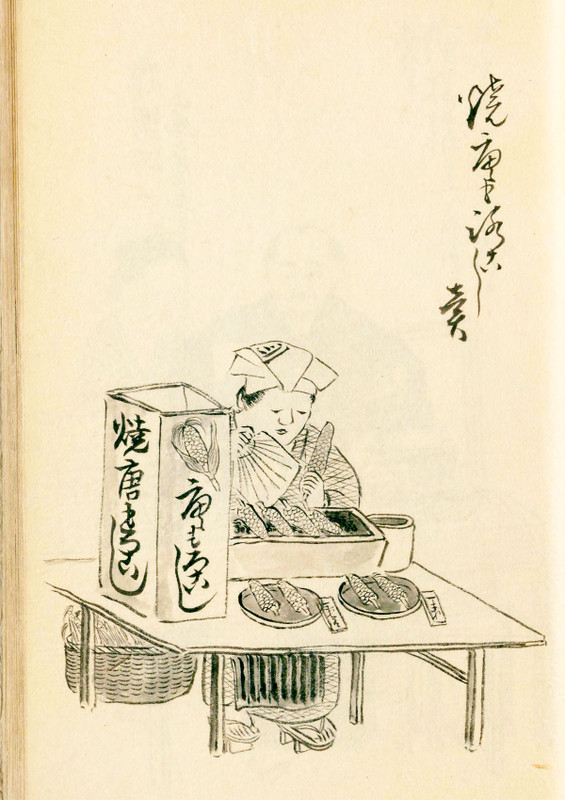 焼唐もろこし
賣
唐もろこし
焼唐もろこし